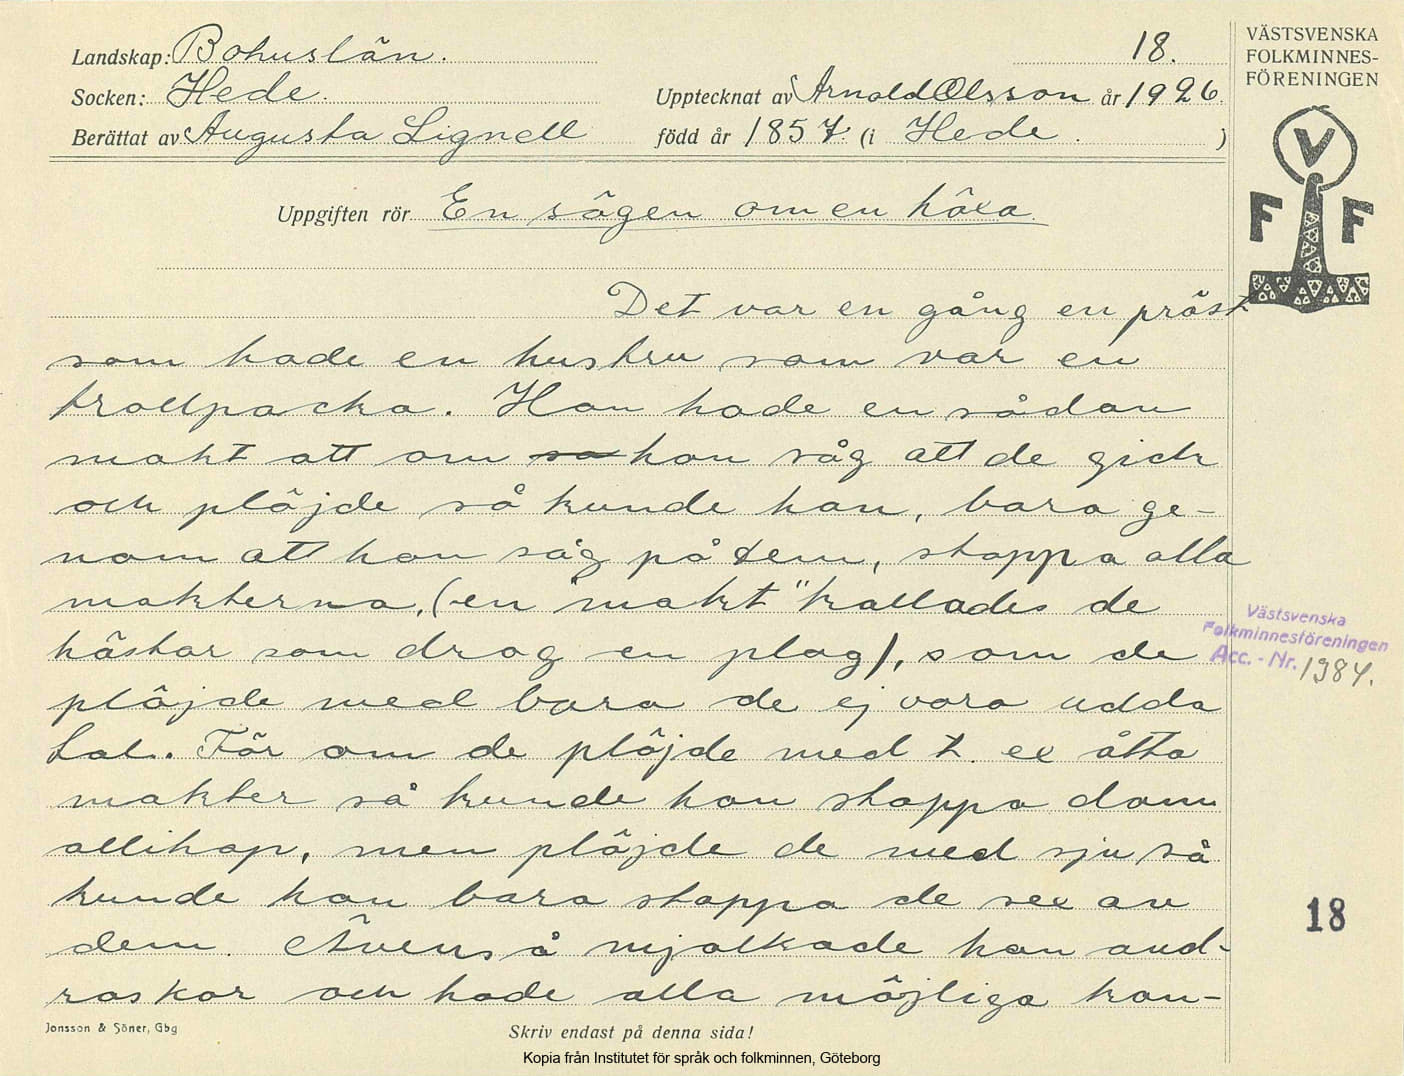 Landskap: Bohuslän. 18.
Socken: Hede. Upptecknat av Arnold Olsson år 1926.
Berättat av Augusta Lignell född år 1857. (i Hede. )
VÄSTSVENSKA
FOLKMINNES-
FÖRENINGEN
V
F F
Uppgiften rör En sägen om en häxa
Det var en gång en präst
som hade en hustru som var en
trollpacka. Hon hade en sådan
makt att om hon såg att de gick
och plöjde så kunde hon, bara ge-
nom att hon såg på dem, stoppa alla
makterna, (en "makt" kallades de
hästar som drog en plog), som de
plöjde med bara de ej voro udda
tal. För om de plöjde med t. ex åtta
makter så kunde hon stoppa dom
allihop, men plöjde de med sju så
kunde hon bara stoppa de sex av
dem. Ävenså mjolkade hon and-
ras kor och hade alla möjliga kon-
Västsvenska
Folkminnesföreningen
Acc. - Nr. 1984.
18
Jonsson & Söner, Gbg
Skriv endast på denna sida!
Kopia från Institutet för språk och folkminnen, Göteborg